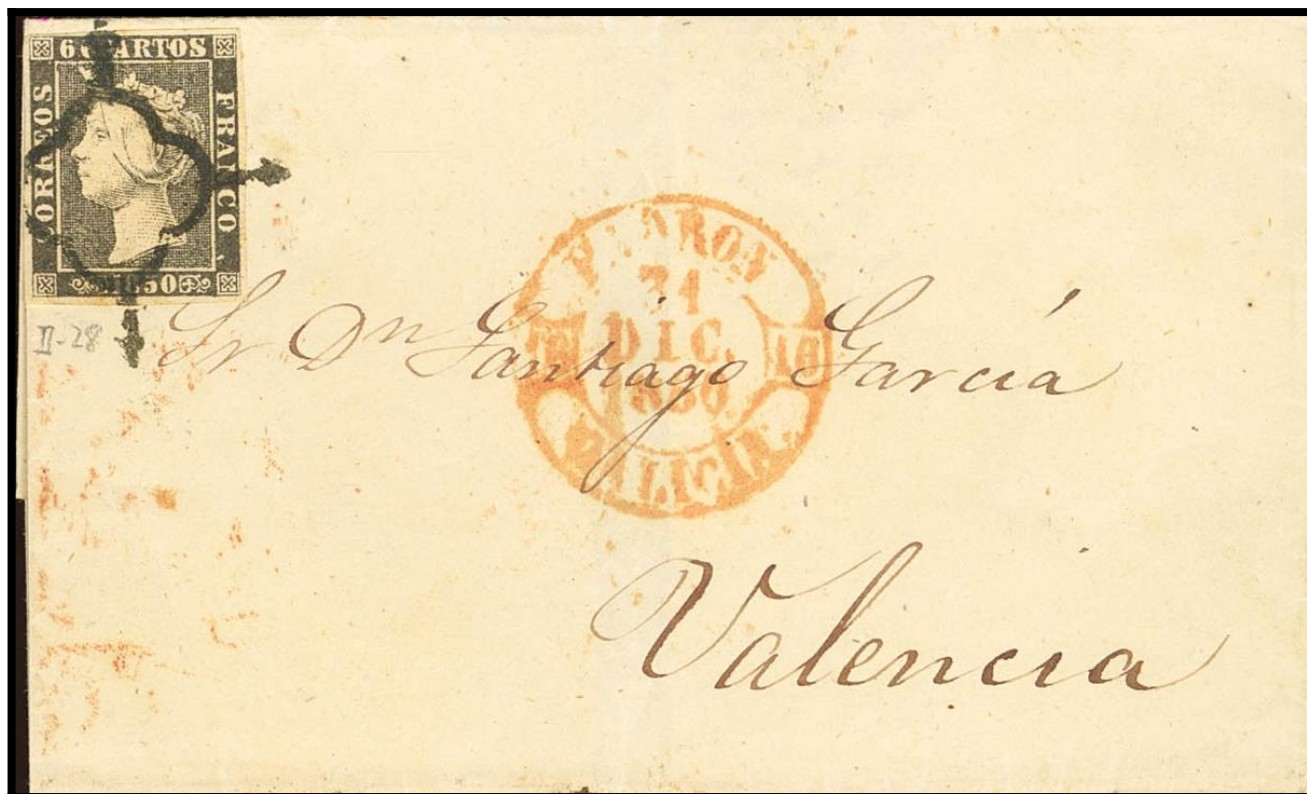 6 CUARTOS
CORREOS
FRANCO.
1850
II-28
PADRON
31
DIC.
1850
16
GALICIA.
Sr Dn Santiago García
Valencia